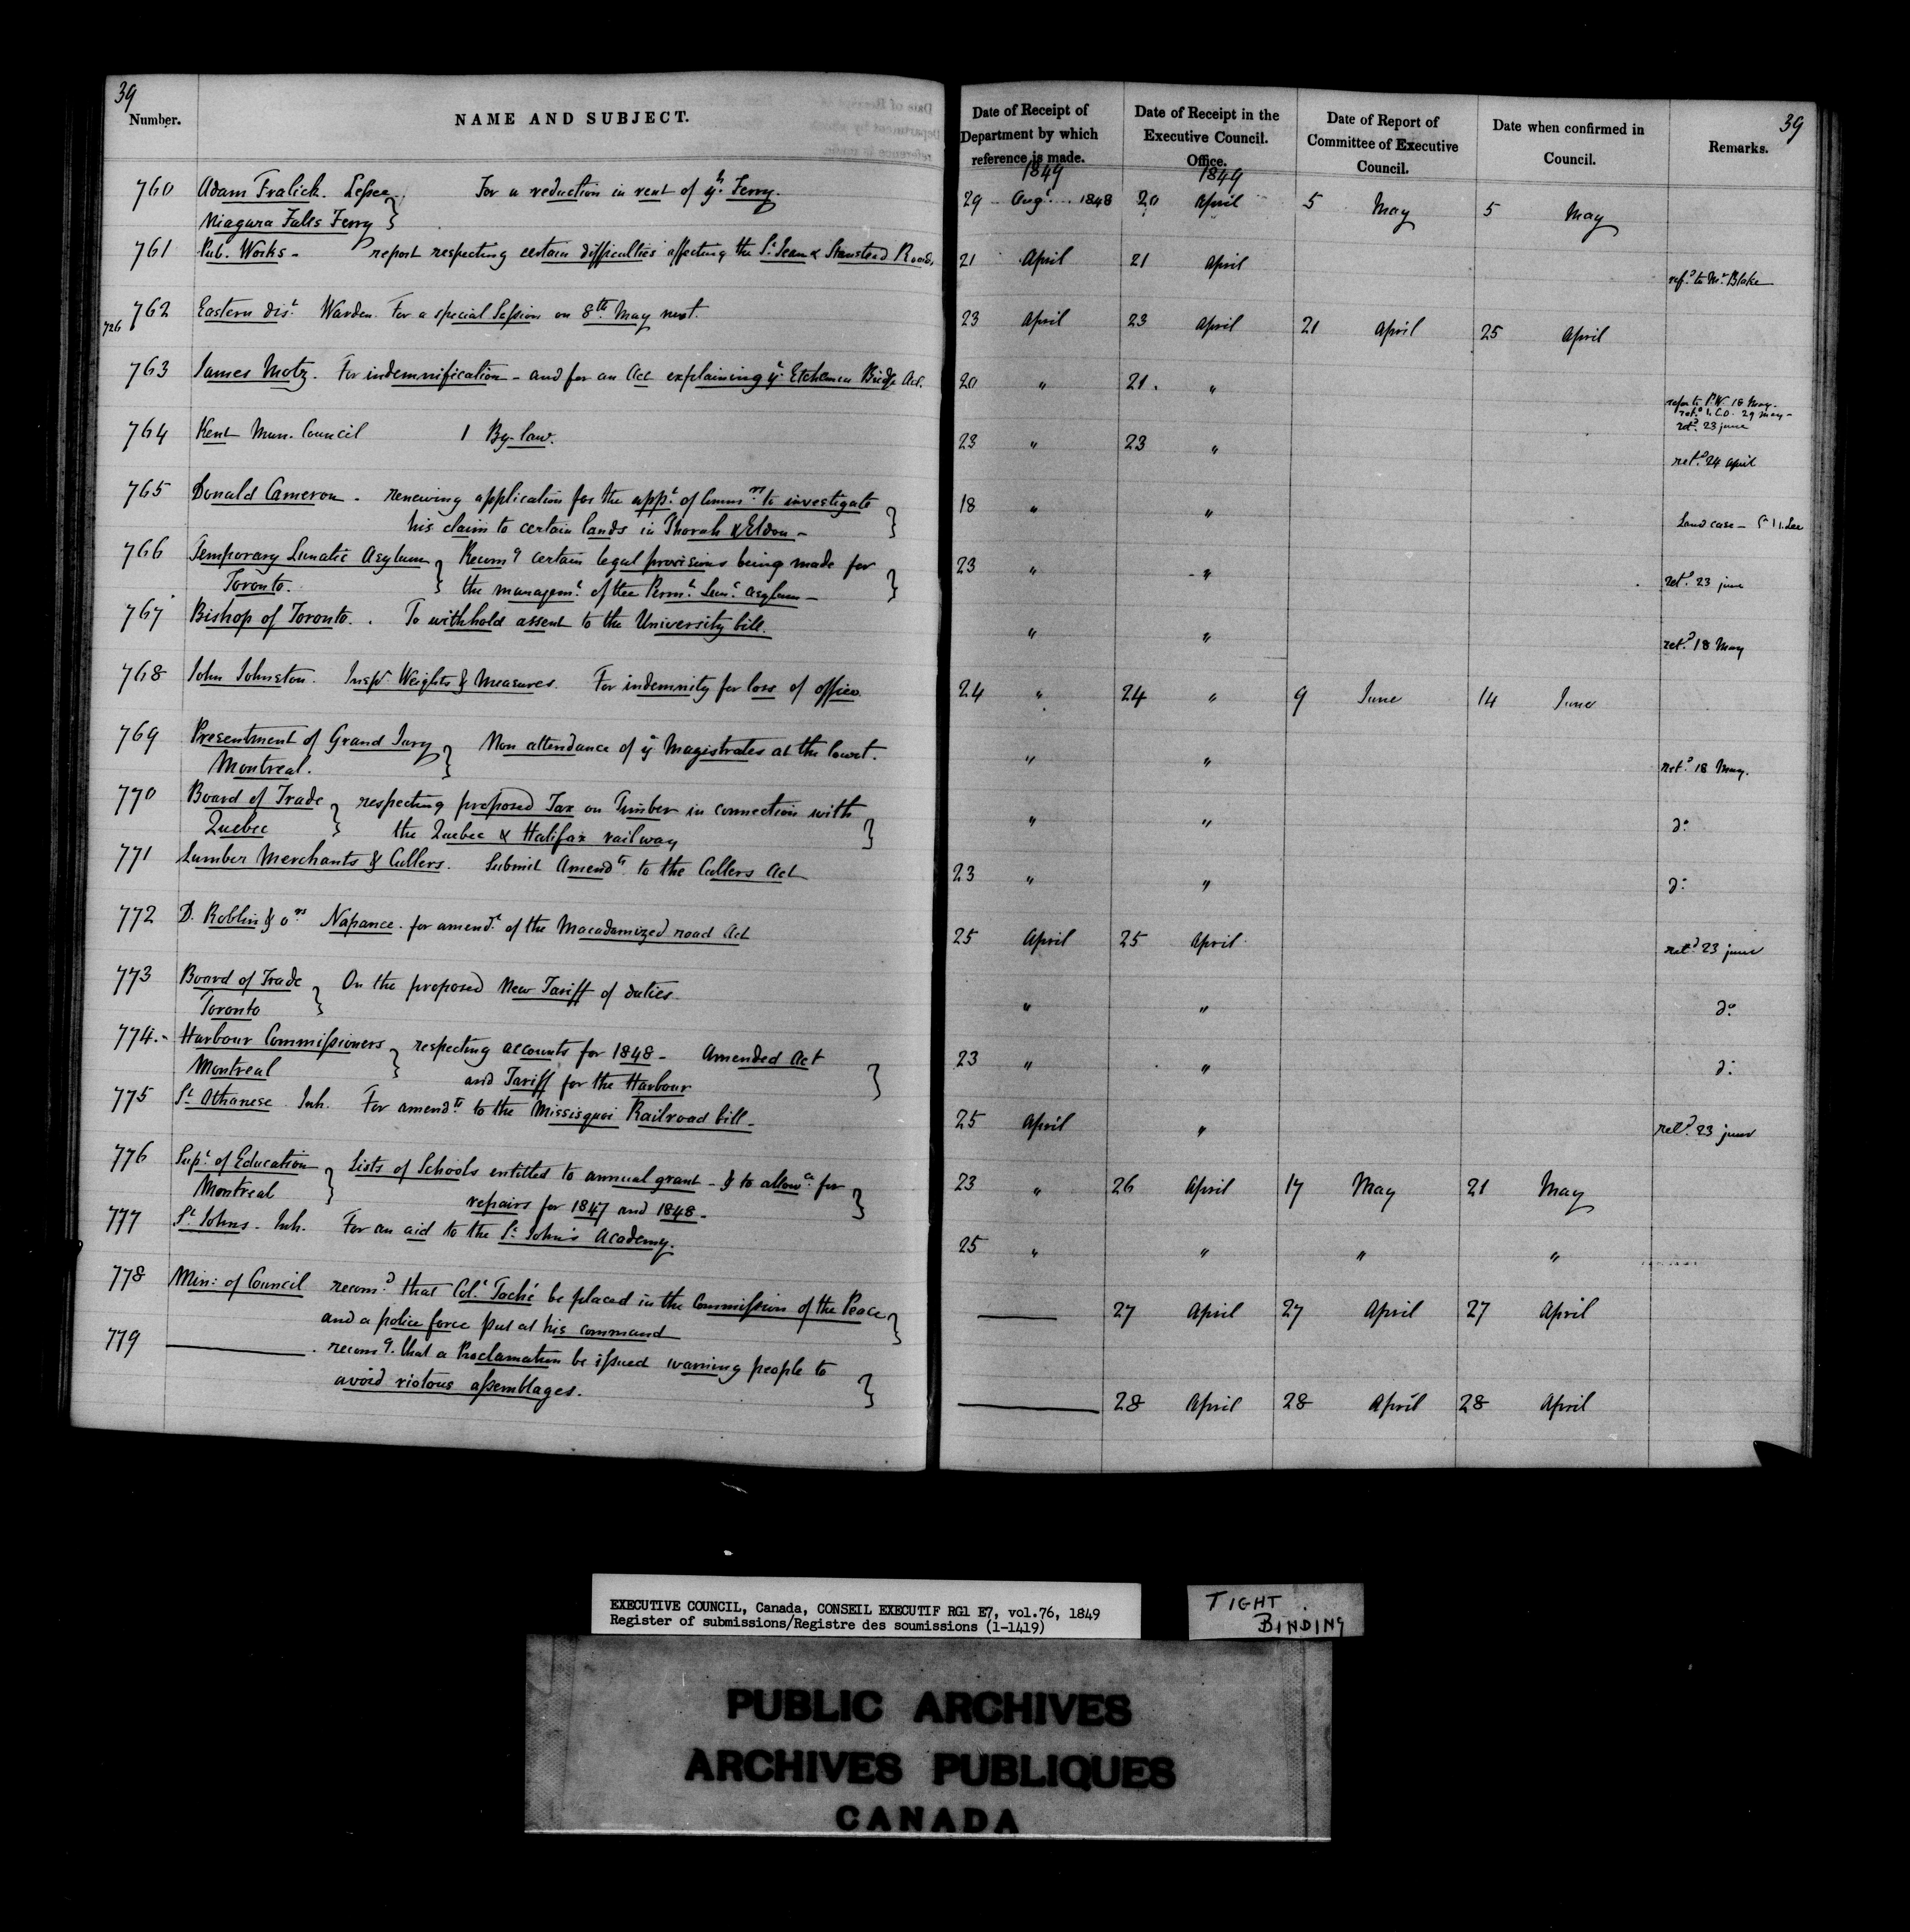 39
Number.
NAME AND SUBJECT.
Date of Receipt of Department by which reference is made.
Date of Receipt in the Executive Council. Office.
Date of Report of Committee of Executive Council.
Date when confirmed in Council.
Remarks.
39
1849 1849
760 Adam Fralick. Lessee For a reduction in rent of ye. Ferry. 29 Augt 1848 20 April 5 May 5 May
Niagara Falls Ferry
761 Pub. Works - report respecting certain difficulties affecting the St Jean & Stanstead Road. 21 April 21 April refd to Mr Blake
762 Eastern Dist Warden. For a special Session on 8th May next. 23 April 23 April 21 April 25 April
726
763 James Motz. For indemnification - and for an Act explaining ye Etchemin Bridge Act. 20 " 21. "
refer to P.W. 18 May.
29 May -
retd 23 june
764 Kent Mun. Council 1 By-law. 23 " 23 " retd 24 April
765 Donald Cameron - renewing application for the appt of Commrs to investigate 18 " " Land case -
his claim to certain lands in Thorah & Eldon -
766 Temporary Lunatic Asylum Recomg certain legal provisions being made for 23 " - " retd 23 june
Toronto. the managemt of the Permt Lunc Asylum -
767 Bishop of Toronto. To withhold assent to the University bill. " " retd 18 May
768 John Johnston. Inspr Weights & Measures. For indemnity for loss of office. 24 " 24 " 9 June 14 June
769 Presentment of Grand Jury Non attendance of ye Magistrates at the Court. " " retd 18 May.
Montreal.
770 Board of Trade respecting proposed Tax on Timber in connection with " " do
Quebec the Quebec & Halifax railway
771 Lumber Merchants & Cullers. Submit Amendts to the Cullers Act 23 " " do
772 D. Roblin & ors Napanee. for amendt of the Macadamized road Act 25 April 25 April retd 23 june
773 Board of Trade On the proposed New Tariff of duties. " " do
Toronto
774. - Harbour Commissioners respecting accounts for 1848 - Amended Act 23 " " do
Montreal and Tariff for the Harbour
775 St Athanese Inh. For amendts to the Missisquoi Railroad bill - 25 April " retd 23 june
776 Supt of Education Lists of Schools entitled to annual grant - & to allowce for 23 " 26 April 17 May 21 May
Montreal repairs for 1847 and 1848 -
777 St Johns - Inh. For an aid to the St John's Academy. 25 " " " "
778 Min: of Council recomd that Col. Taché be placed in the Commission of the Peace 27 April 27 April 27 April
and a police force put at his command
779 recomg. that a Proclamation be issued warning people to
avoid riotous assemblages. 28 April 28 April 28 April
EXECUTIVE COUNCIL, Canada, CONSEIL EXECUTIF RG1 E7, vol.76, 1849
Register of submissions/Registre des soumissions (1-1419)
TIGHT
BINDING
PUBLIC ARCHIVES
ARCHIVES PUBLIQUES
CANADA